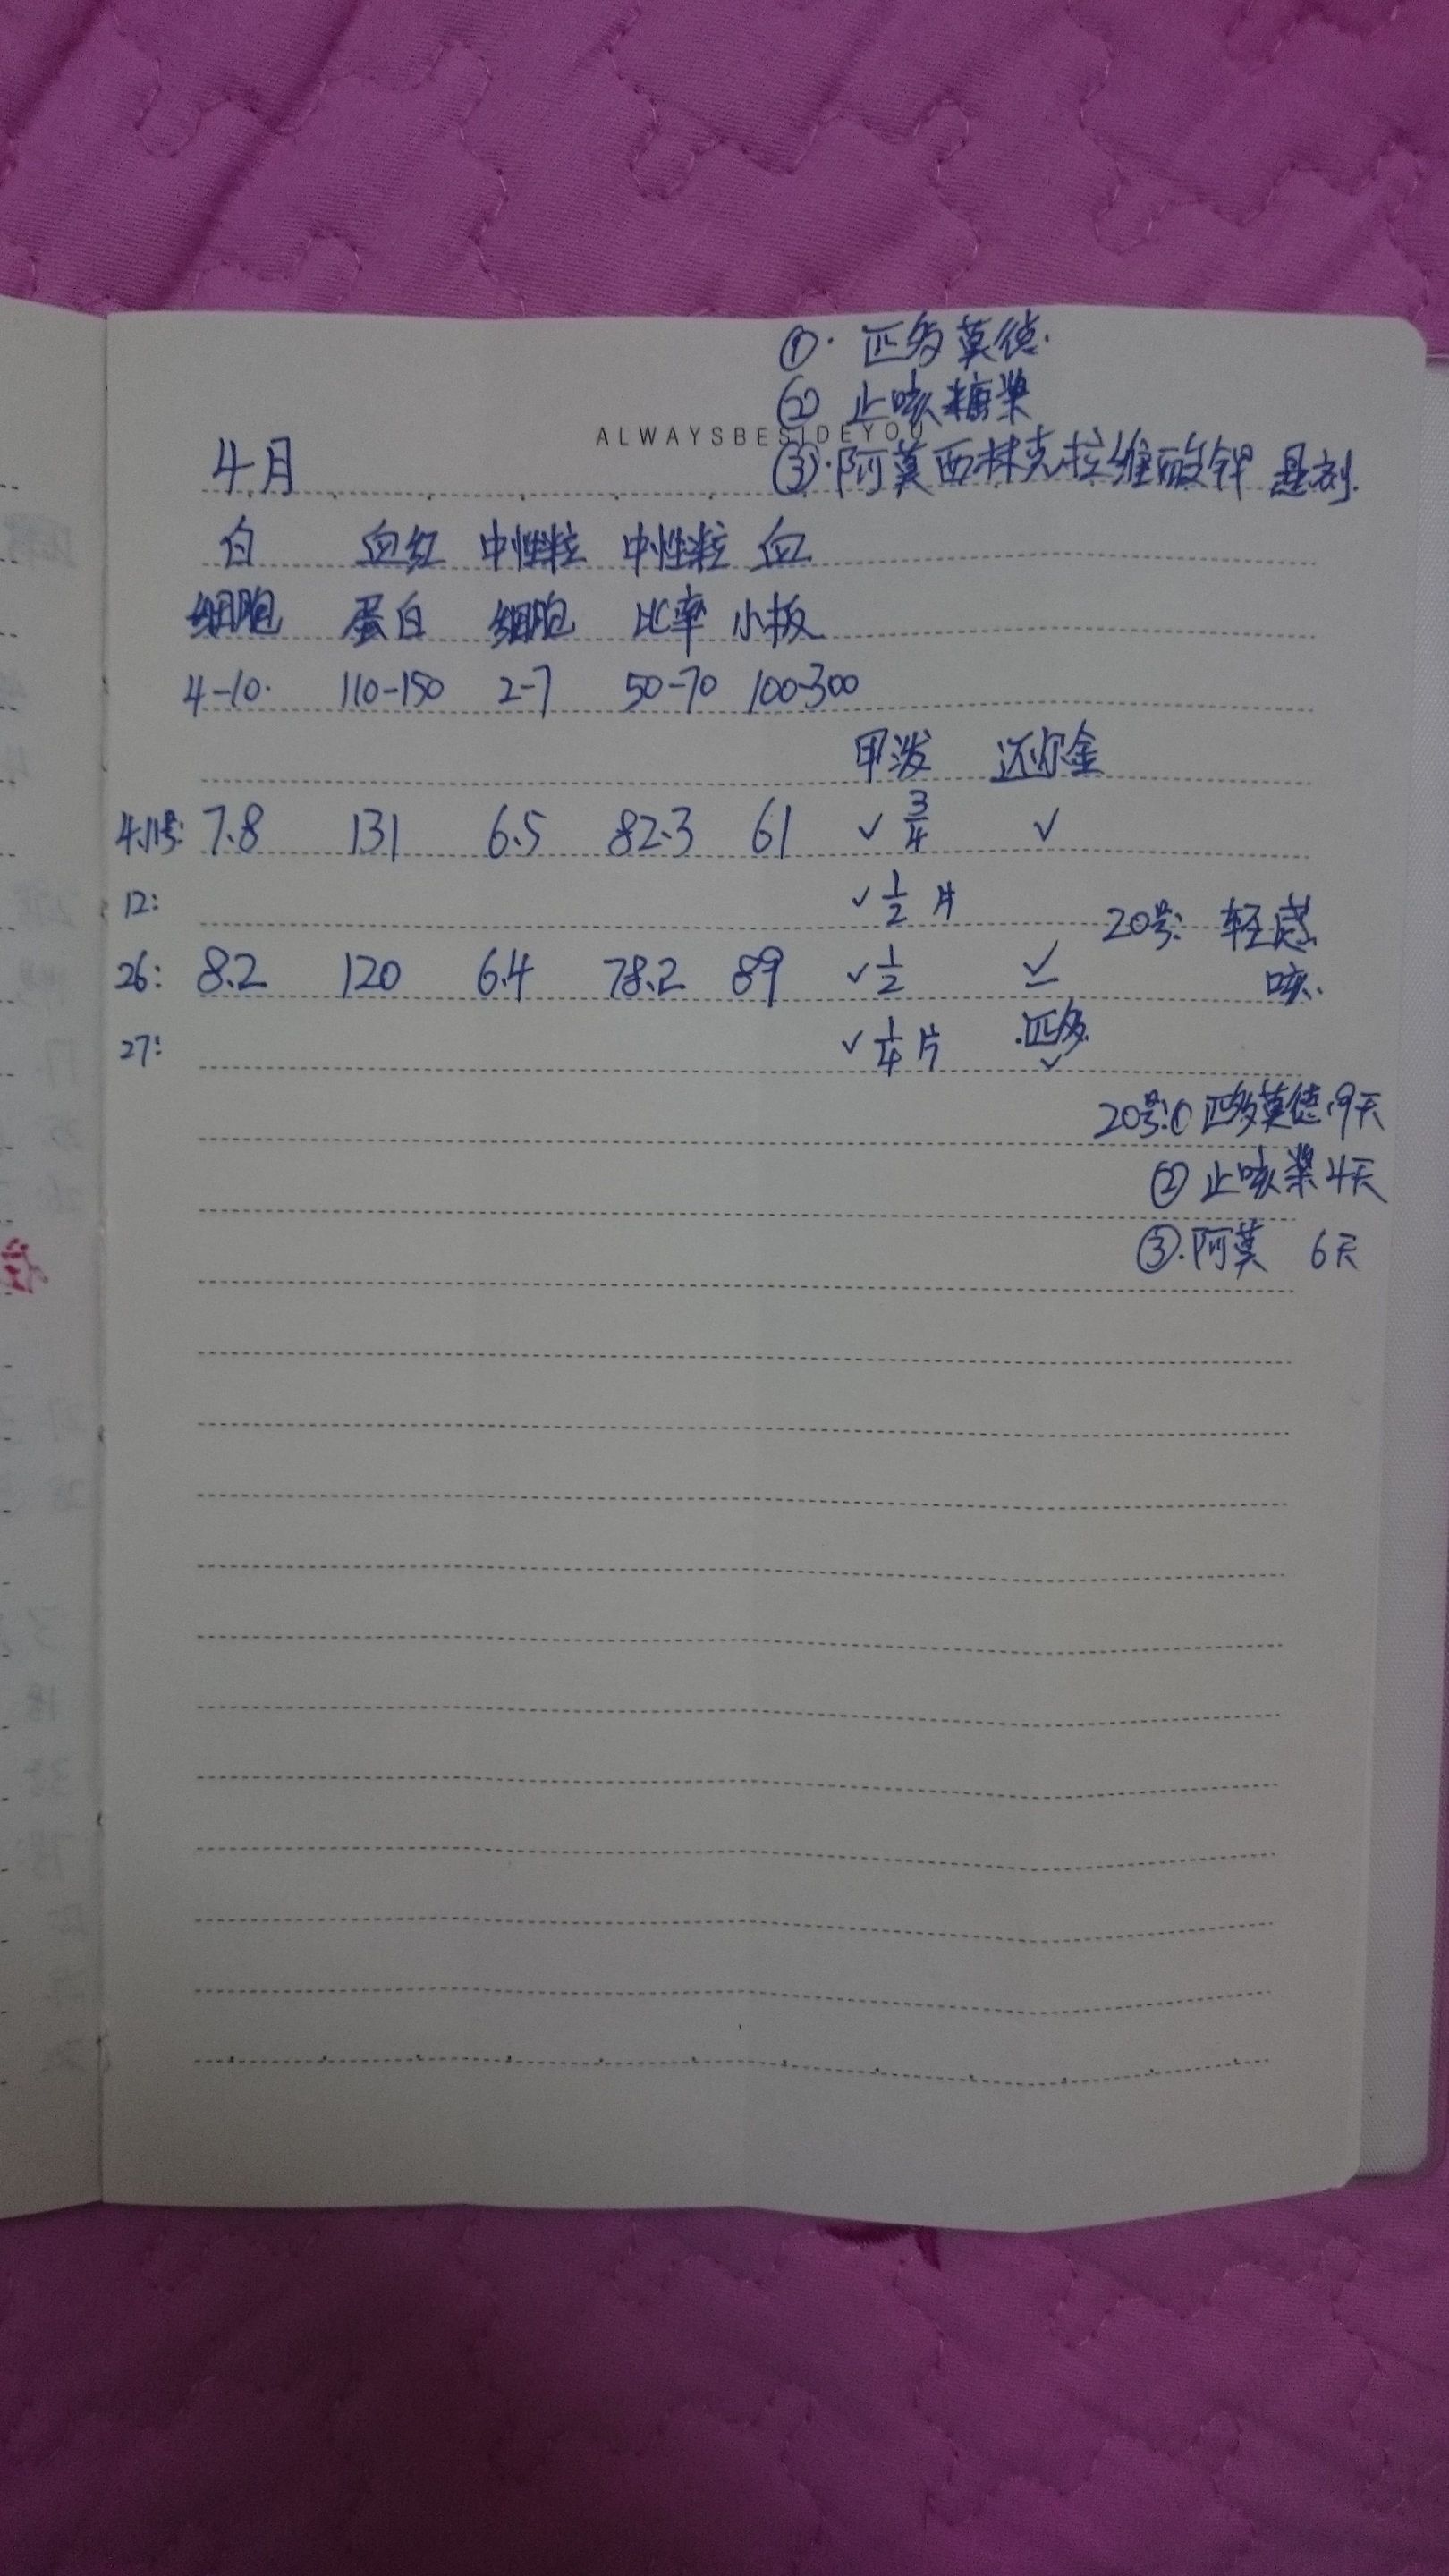 ①. 匹多莫德.
② 止咳糖浆
ALWAYSBESIDEYOU
4月
③.阿莫西林克拉维酸钾 悬剂.
白 血红 中性粒 中性粒 血
细胞 蛋白 细胞 比率 小板
4-10. 110-150 2-7 50-70 100-300
甲泼 还尔金
4.11号: 7.8 131 6.5 82.3 61 ✓ 3/4 ✓
12: ✓ 1/2 片
20号: 轻感
26: 8.2 120 6.4 78.2 89 ✓ 1/2 ✓
咳.
27: ✓ 1/4 片 .匹多. ✓
20号:① 匹多莫德.9天
② 止咳浆 4天
③.阿莫 6天